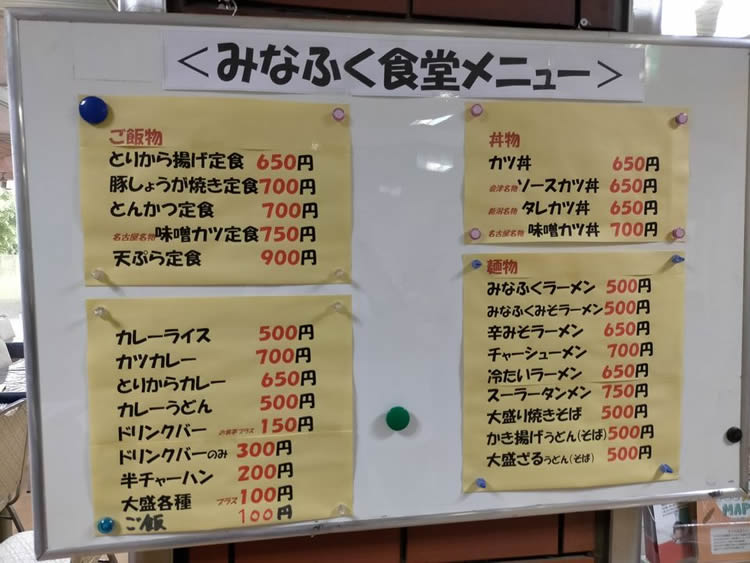 ＜みなふく食堂メニュー＞
ご飯物
とりから揚げ定食 650円
豚しょうが焼き定食 700円
とんかつ定食 700円
名古屋名物 味噌カツ定食 750円
天ぷら定食 900円
カレーライス 500円
カツカレー 700円
とりからカレー 650円
カレーうどん 500円
ドリンクバー お食事プラス 150円
ドリンクバーのみ 300円
半チャーハン 200円
大盛各種 プラス 100円
ご飯 100円
丼物
カツ丼 650円
会津名物 ソースカツ丼 650円
新潟名物 タレカツ丼 650円
名古屋名物 味噌カツ丼 700円
麺物
みなふくラーメン 500円
みなふくみそラーメン 500円
辛みそラーメン 650円
チャーシューメン 700円
冷たいラーメン 650円
スーラータンメン 750円
大盛り焼きそば 500円
かき揚げうどん(そば) 500円
大盛ざるうどん(そば) 500円
MAP